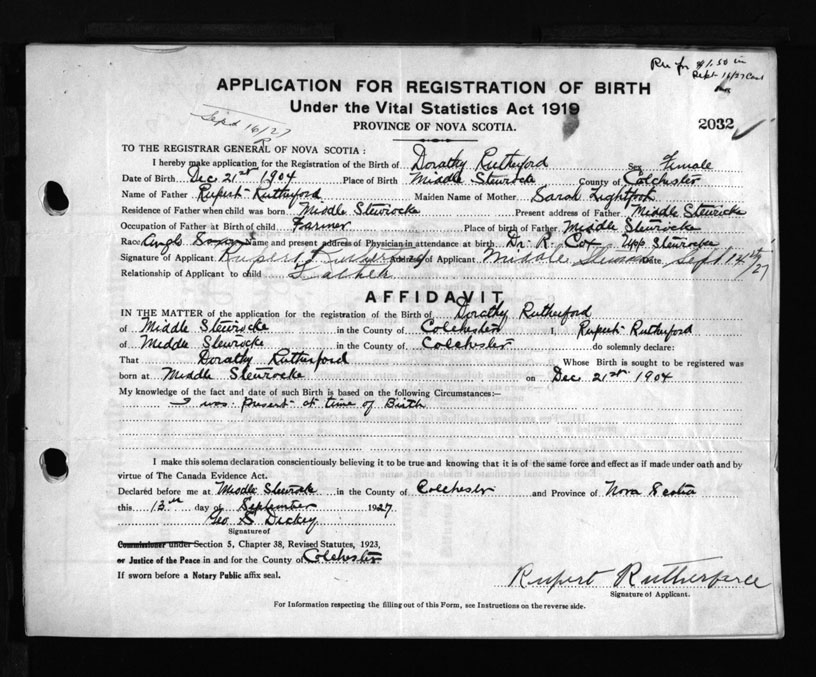 Rec for $1.50 in
Sept 16/27
APPLICATION FOR REGISTRATION OF BIRTH
Under the Vital Statistics Act 1919
Sept 16/27
PROVINCE OF NOVA SCOTIA.
2032
TO THE REGISTRAR GENERAL OF NOVA SCOTIA :
I hereby make application for the Registration of the Birth of Dorathy Rutherford Sex Female
Date of Birth Dec 21st 1904 Place of Birth Middle Stewiacke County of Colchester
Name of Father Rupert Rutherford Maiden Name of Mother Sarah Lightfoot
Residence of Father when child was born Middle Stewiacke Present address of Father Middle Stewiacke
Occupation of Father at Birth of child Farmer Place of birth of Father Middle Stewiacke
Race Anglo Saxon Name and present address of Physician in attendance at birth Dr. R. Cox Upp. Stewiacke
Signature of Applicant Rupert Rutherford Address of Applicant Middle Stewiacke Date Sept. 14th/27
Relationship of Applicant to child Father
AFFIDAVIT
IN THE MATTER of the application for the registration of the Birth of Dorathy Rutherford
of Middle Stewiacke in the County of Colchester I, Rupert Rutherford
of Middle Stewiacke in the County of Colchester do solemnly declare:
That Dorathy Rutherford Whose Birth is sought to be registered was
born at Middle Stewiacke on Dec 21st 1904
My knowledge of the fact and date of such Birth is based on the following Circumstances:—
I was present at time of Birth
I make this solemn declaration conscientiously believing it to be true and knowing that it is of the same force and effect as if made under oath and by
virtue of The Canada Evidence Act.
Declared before me at Middle Stewiacke in the County of Colchester and Province of Nova Scotia
this 13th day of September 1927
Geo S Dickey
Signature of
Commissioner under Section 5, Chapter 38, Revised Statutes, 1923,
or Justice of the Peace in and for the County of Colchester
If sworn before a Notary Public affix seal.
Rupert Rutherford
Signature of Applicant.
For Information respecting the filling out of this Form, see Instructions on the reverse side.